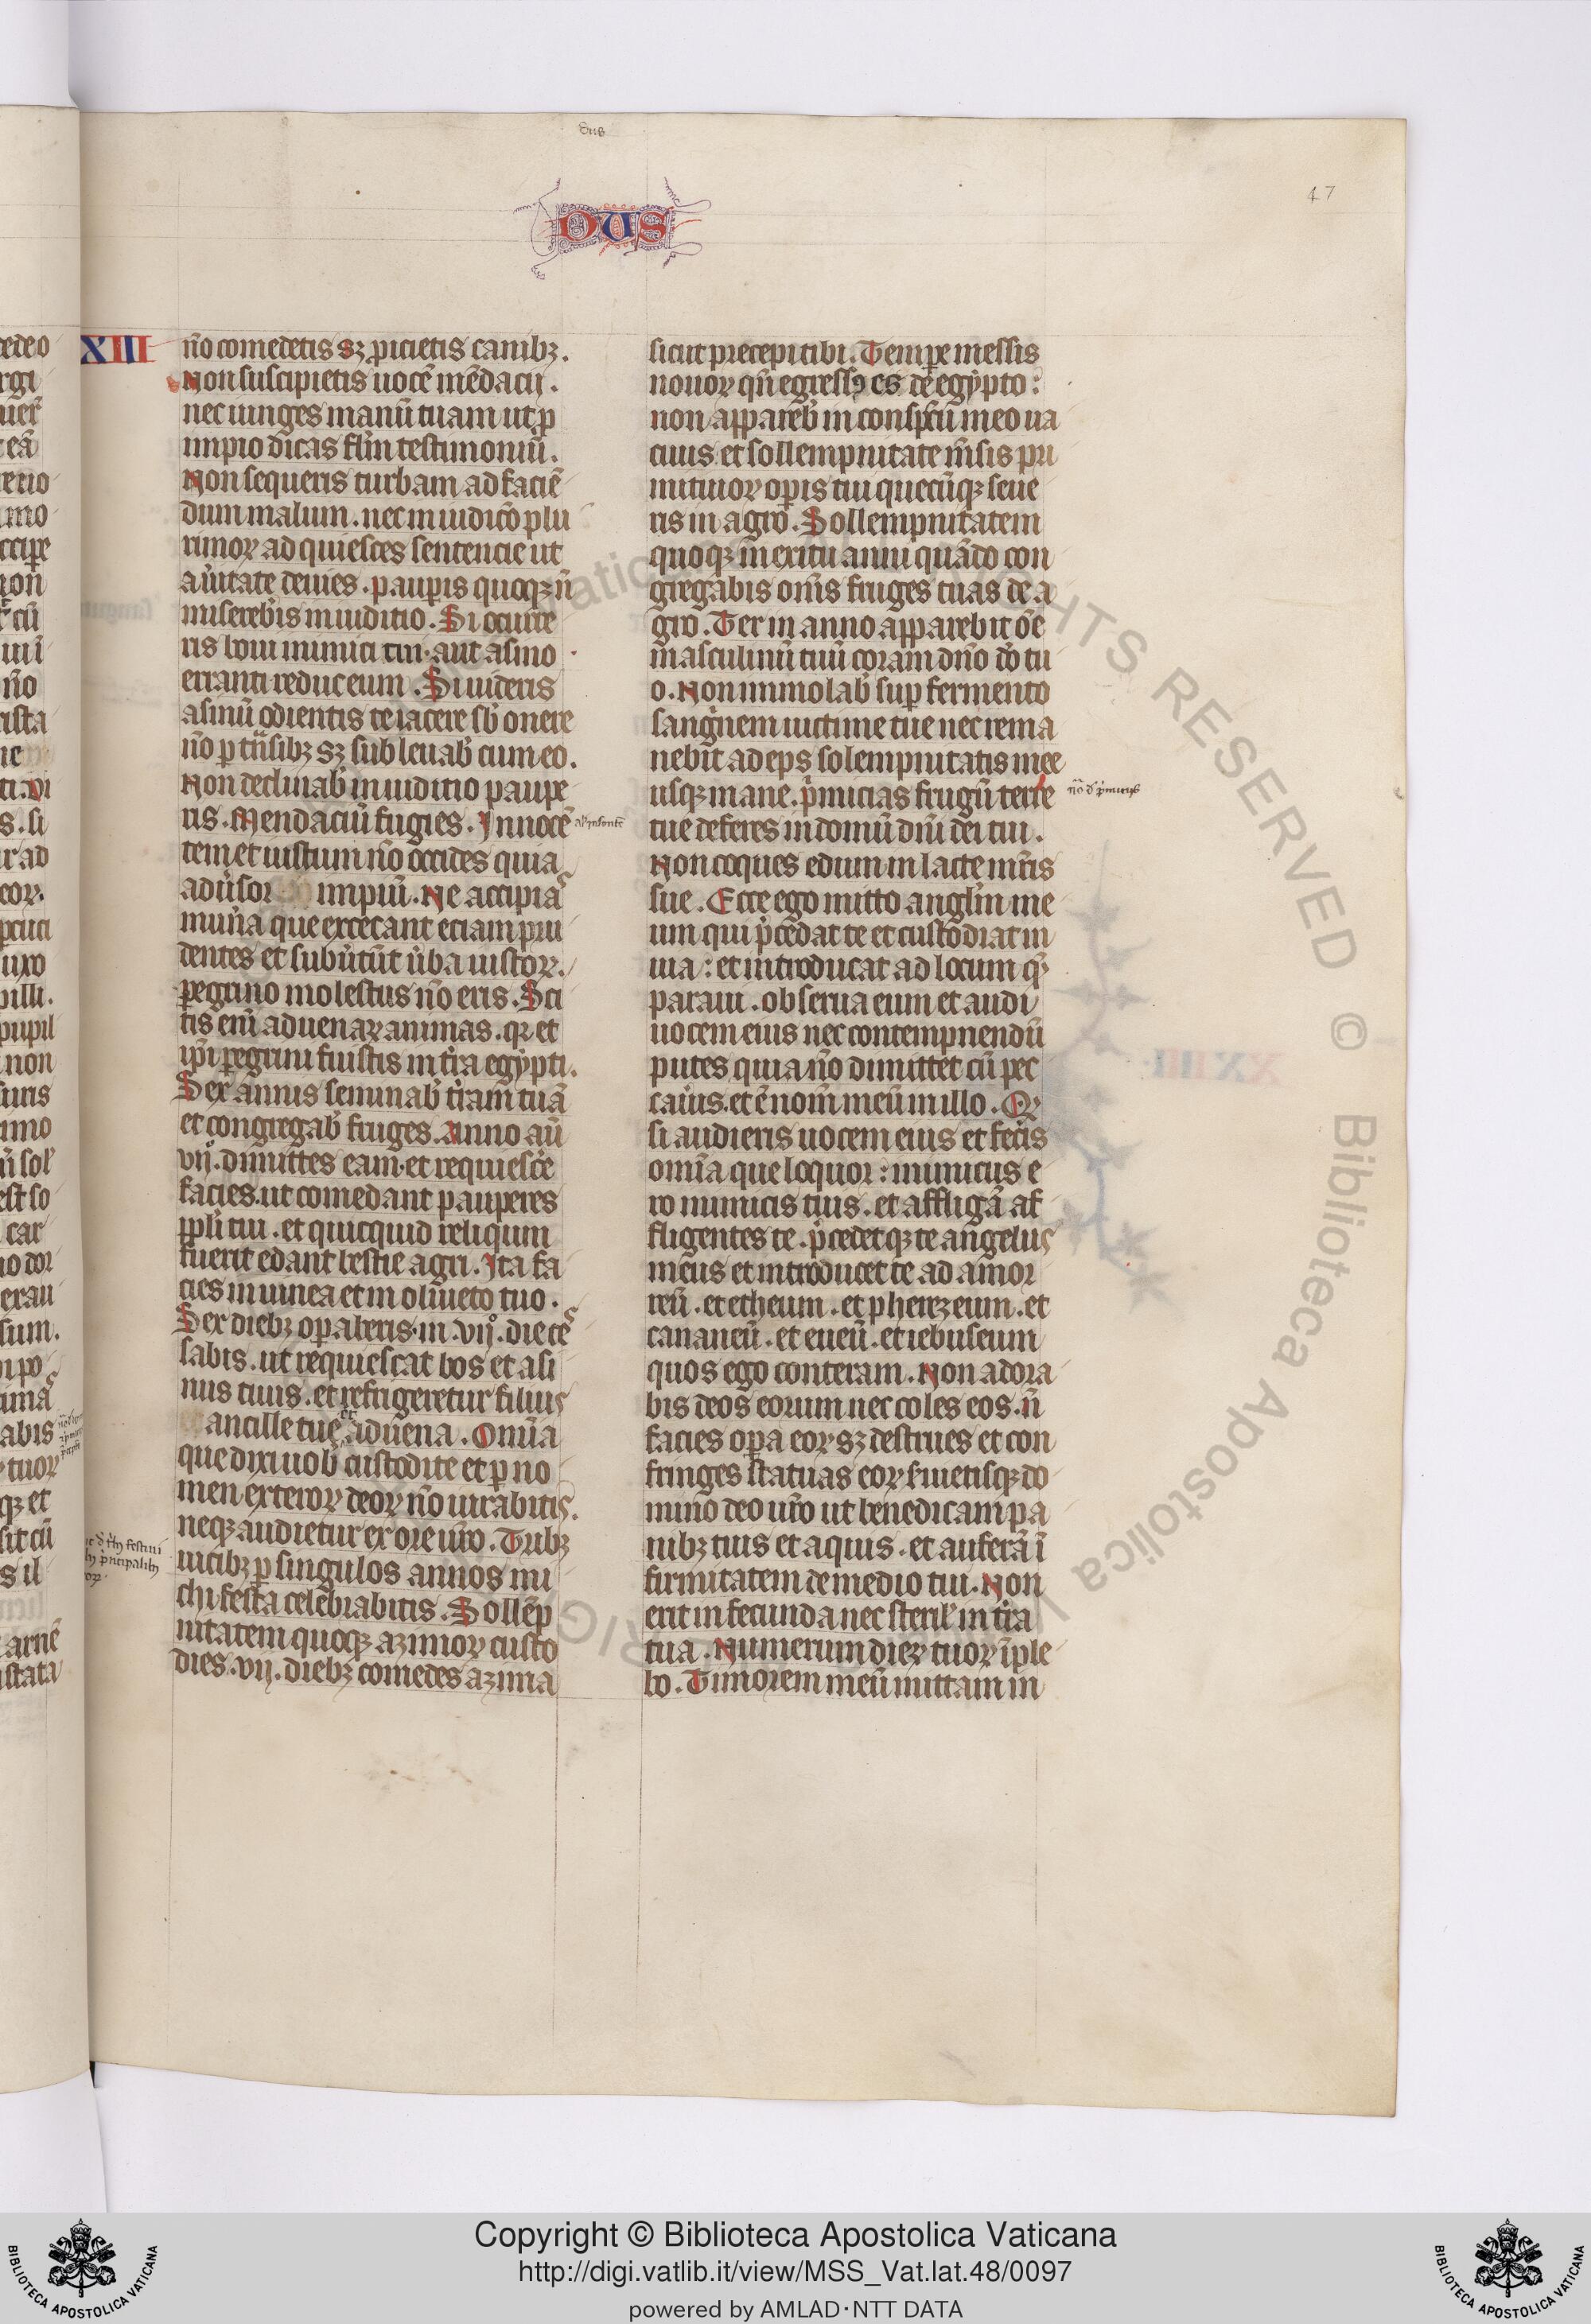 dus
DUS
47
XIII
n̄o comedetis sꝫ ꝓicietis canibꝫ.
Non suscipietis uocē mēdacii.
nec iunges manū tuam ut ꝑ
impio dicas fl̄m testimoniū.
Non sequeris turbam ad faciē
dum malum. nec in iudicō plu
rimoꝝ adquiesces sentencie ut
a ũitate deuies. pauꝑis quoqꝫ n̄
misereb̾is in iuditio. Si occurre
ris boui inimici tui. aut asino
erranti reduc eum. Si uideris
asinū odientis te iacere sb̾ onere
n̄o ꝑtn̄sibꝫ sꝫ subleuab̾ cum eo.
Non declinab̾ in iuditio paupe
ris. Mendaciū fugies. Innocē
tem et iustum n̄o occides quia
adũsor impiū. Ne accipias
mun̾a que excecant eciam pru
dentes et subũtūt ũba iustoꝝ.
ꝑegrino molestus n̄o eris. Sci
tis eni̅ aduenaꝝ animas. qꝛ et
ip̄i ꝑegrini fuistis in tr̾a egypti.
Sex annis seminab̾ tr̾am tuā
et congregab̾ fruges. Anno aū
vijº. dimittes eam. et requiesc̾e
facies. ut comedant pauperes
ppl̾i tui. et quicquid reliqum
fuerit edant bestie agri. Ita fa
cies in uinea et in oliueto tuo.
Sex diebꝫ oꝑaberis. in .vijº. die ces
sabis. ut requiescat bos et asi
nus tuus. et refrigeretur filius
ancille tue et aduena. Omīa
que dixi uob̾ custodite et ꝑ no
men exteroꝝ deoꝝ n̄o iurabitis.
neqꝫ audietur ex ore ur̄o. Tribꝫ
uicibꝫ ꝑ singulos annos mi
chi festa celebrabitis. Sollēp
nitatem quoqꝫ azimoꝝ custo
dies. vij. diebꝫ comedes azima
sicut precepi tibi. Tempe messis
nouoꝝ qn̄ egressꝰ es de egypto:
non appareb̾ in conspc̄u meo ua
cuus. et sollempnitate m̄sis pri
mitiuoꝝ oꝑis tui quecūqꝫ seue
ris in agro. Sollempnitatem
quoqꝫ in exitu anni quādo con
gregabis om̄s fruges tuas de a
gro. Ter in anno apparebit om̄e
masculinū tuū coram dn̄o do̅ tu
o. Non immolab̾ suꝑ fermento
sangⁱnem uictime tue nec rema
nebit adeps solempnitatis mee
usqꝫ mane. pⁱmicias frugū terre
tue deferes in domū dn̄i dei tui.
Non coques edum in lacte mr̄is
sue. Ecce ego mitto angl̄m me
um qui p̄cedat te et custodiat in
uia: et introducat ad locum qꝫ
paraui. obserua eum et audi
uocem eius nec contempnendū
putes quia n̄o dimittet cū pec
caũis. et ē nom̄ meū in illo. Qꝛ
si audieris uocem eius et fec̾is
omīa que loquor: inimicus e
ro inimicis tuis. et affligā af
fligentes te. p̄cedetqꝫ te angelus
meus et introducet te ad amor
reū. et etheum. et pherezeum. et
cananeū. et eueū. et iebuseum
quos ego conteram. Non adora
bis deos eorum nec coles eos. n̄
facies oꝑa eoꝝ sꝫ destrues et con
fringes statuas eoꝝ s̾uietisqꝫ do
mino deo ur̄o ut benedicam pa
nibꝫ tuis et aquis. et auferā ī
firmitatem de medio tui. Non
erit infecunda nec steril̾ in tr̾a
tua. Numerum dieꝝ tuoꝝ īple
bo. Timorem meū mittam in
XXIIII
RIGHTS RESERVED © Biblioteca Apostolica
BIBLIOTECA APOSTOLICA VATICANA
Copyright © Biblioteca Apostolica Vaticana
http://digi.vatlib.it/view/MSS_Vat.lat.48/0097
powered by AMLAD·NTT DATA
BIBLIOTECA APOSTOLICA VATICANA